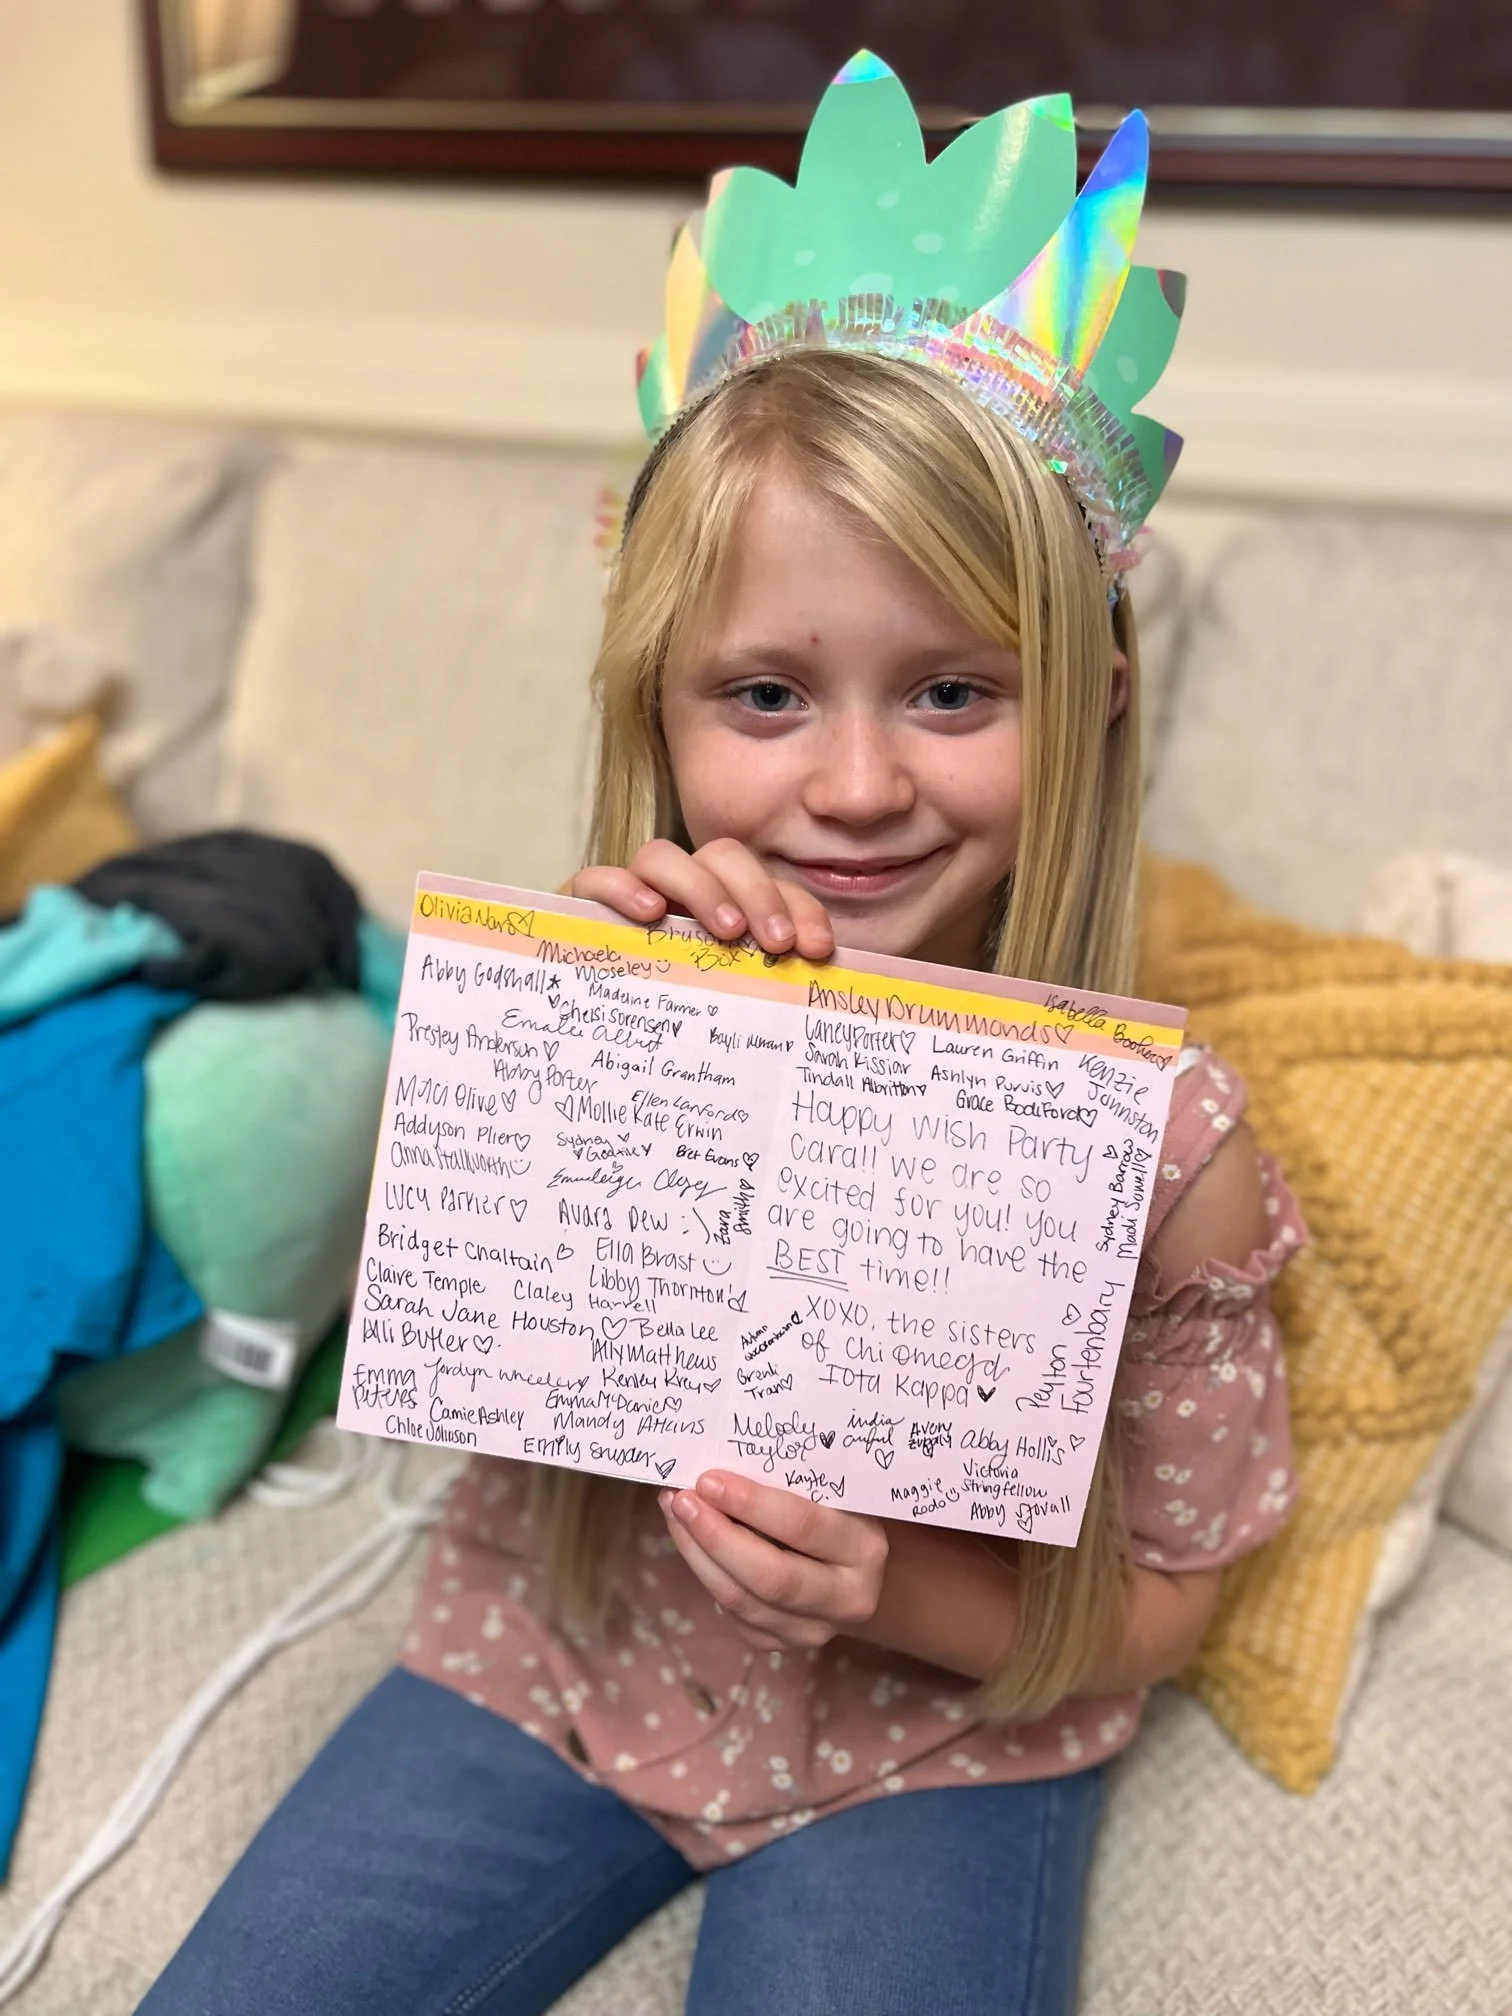 Olivia
Michaela
Moseley
Abby Godshall
Madeline Farmer
Chelsi Sorensen
Emalee Albert
Bayli
Presley Anderson
Abigail Grantham
Abby Porter
Maci Olive
Ellen Lanford
Mollie Kate Erwin
Addyson Plier
Sydney
Bret Evans
Anna Stallworth
Lucy Parker
Avara Dew :)
Zara
Smith
Bridget Chaltain
Ella Brast
Claire Temple
Claley Harrell
Libby Thornton
Sarah Jane Houston
Bella Lee
Alli Butler
Ally Matthews
Emma
Peters
Jordyn Wheeler
Kenley Krey
Emma McDaniel
Camie Ashley
Mandy Atkins
Chloe Johnson
Emily
Ansley Drummonds
Isabella Booher
Laney Porter
Lauren Griffin
Kenzie
Johnston
Sarah Kissiar
Ashlyn Purvis
Tindall Albritton
Grace Bodiford
Happy Wish Party
Cara!! we are so
excited for you! you
are going to have the
BEST time!!
XOXO, the sisters
of Chi Omega
Iota Kappa
Sydney Barrow
Madi Sowell
Peyton
Fourtenbary
Tran
Melody
Taylor
india
Avery
Abby Hollis
Victoria
Stringfellow
Kaylee
C.
Maggie
Rodo
Abby Stovall